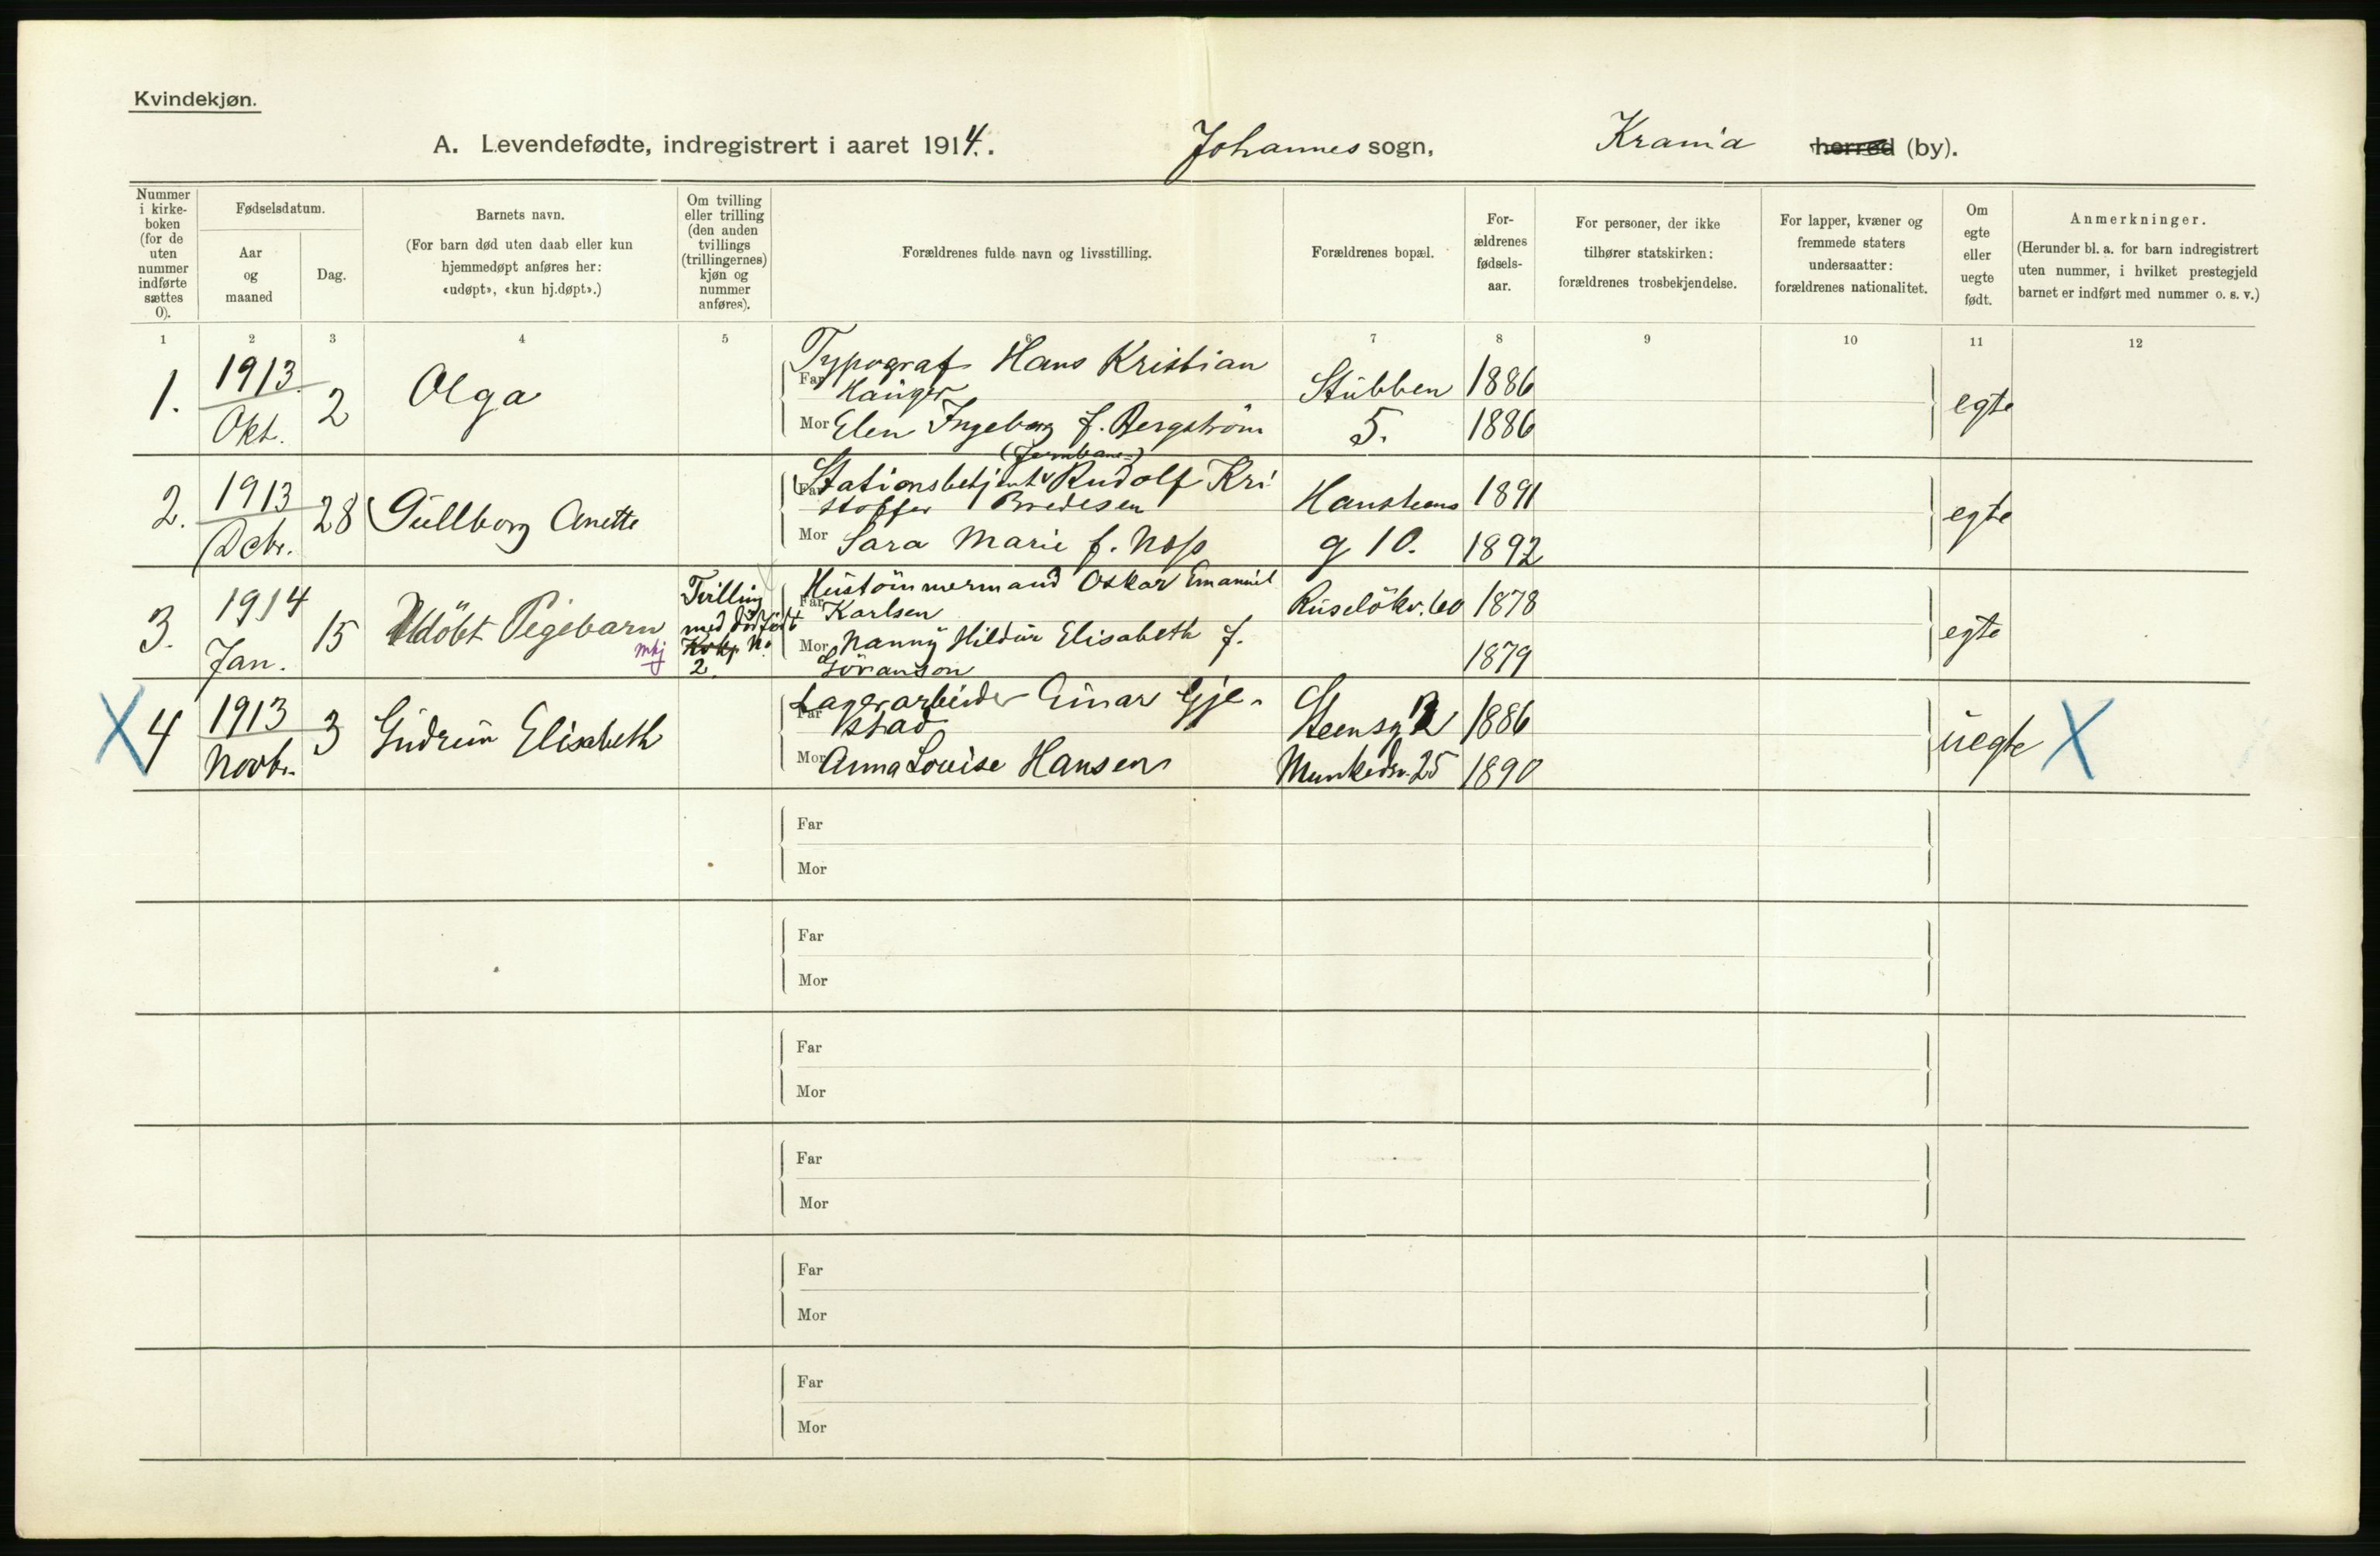 Kvindekjøn.
A. Levendefødte, indregistrert i aaret 1914. Johannes sogn, Krania herred (by).
Nummer i kirke-boken (for de uten nummer indførte sættes 0).
Fødselsdatum.
Aar og maaned
Dag.
Barnets navn.
(For barn død uten daab eller kun hjemmedøpt anføres her: «udøpt», «kun hj.døpt».)
Om tvilling eller trilling (den anden tvillings (trillingernes) kjøn og nummer anføres).
Forældrenes fulde navn og livsstilling.
Forældrenes bopæl.
For-ældrenes fødsels-aar.
For personer, der ikke tilhører statskirken: forældrenes trosbekjendelse.
For lapper, kvæner og fremmede staters undersaatter: forældrenes nationalitet.
Om egte eller uegte født.
Anmerkninger.
(Herunder bl. a. for barn indregistrert uten nummer, i hvilket prestegjeld barnet er indført med nummer o. s. v.)
1 2 3 4 5 6 7 8 9 10 11 12
1. 1913 Okt. 2 Olga
Far Typograf Hans Kristian Hanger Stubben 1886
Mor Elen Ingeborg f. Bergström 5. 1886
egte
2. 1913 Dcbr. 28 Gullborg Anette
(Jernbane-)
Far Stationsbetjent Rudolf Kristoffer Bredesen Hansteens 1891
Mor Sara Marie f. Moss g 10. 1892
egte
3. 1914 Jan. 15 Udöbt Pigebarn mkj
Tvilling med dödfödt Kvkj. No 2.
Far Hustömmermand Oskar Emanuel Karlsen Ruselökv. 60 1878
Mor Nanny Hildur Elisabeth f. Göranson 1879
egte
X 4 1913 Novbr. 3 Gudrun Elisabeth
Far Lagerarbeider Einar Gjelstad Steensg 12 1886
Mor Anna Louise Hansen Munkedsv. 25 1890
uegte X
Far
Mor
Far
Mor
Far
Mor
Far
Mor
Far
Mor
Far
Mor